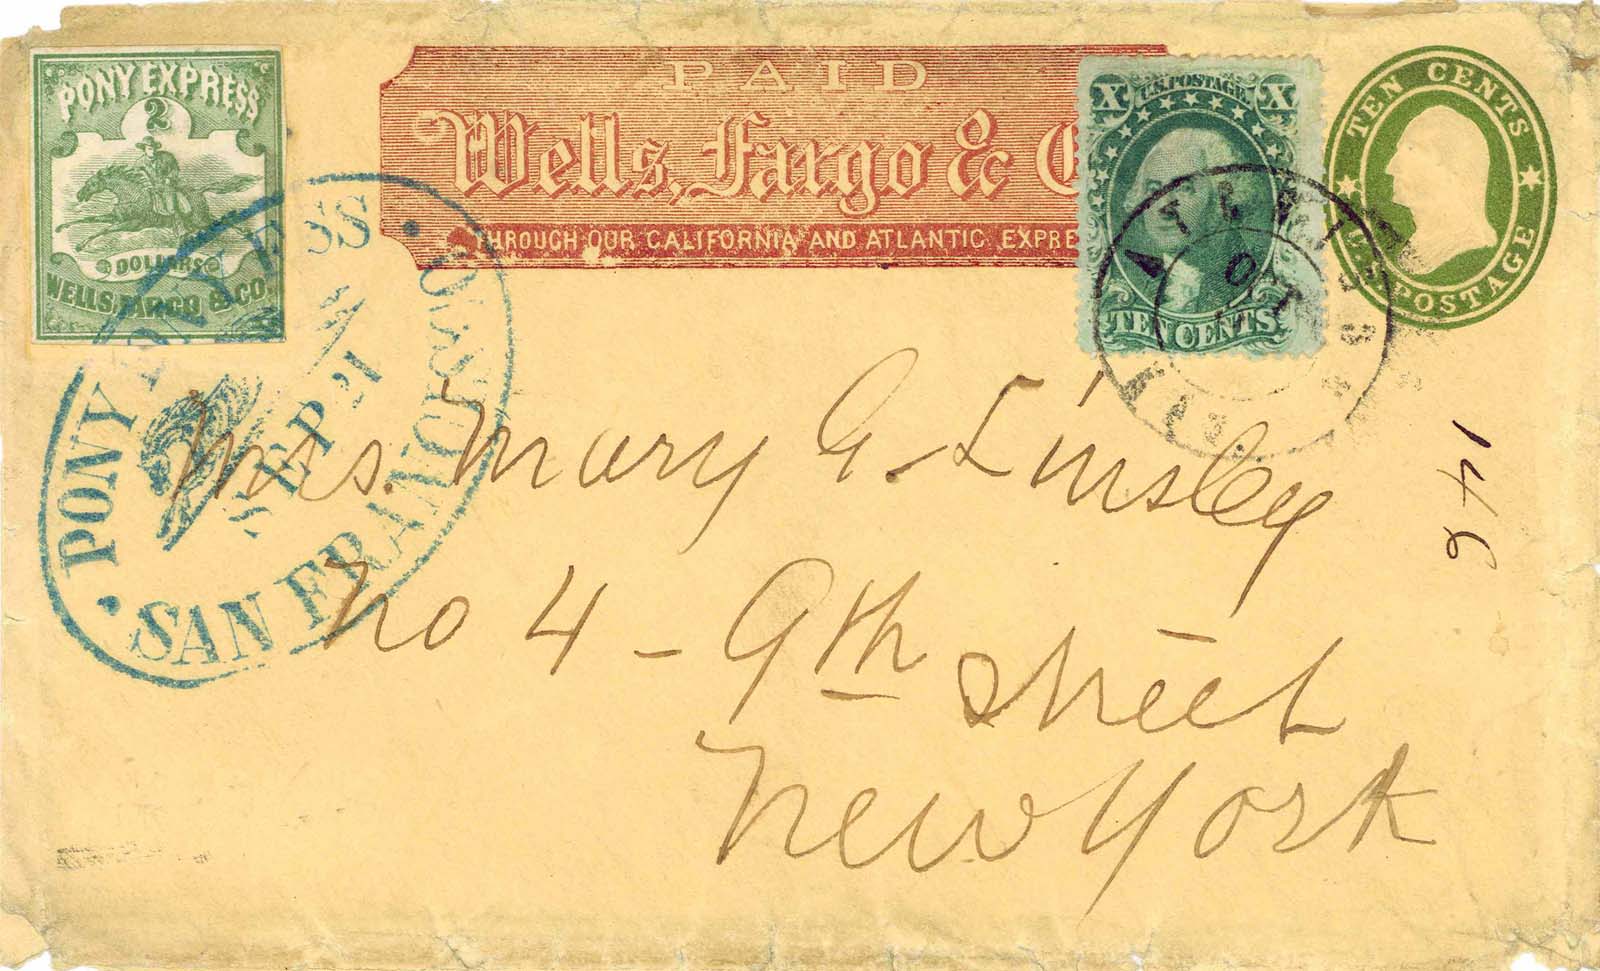 PONY EXPRESS
2
DOLLARS
WELLS, FARGO & CO.
PAID
Wells, Fargo & C
THROUGH OUR CALIFORNIA AND ATLANTIC EXPRE
X U.S. POSTAGE X
TEN CENTS
TEN CENTS
U.S. POSTAGE
PONY EXPRESS
SEP 21
SAN FRANCISCO
OCT
Mrs. Mary G. Linsley
No 4 - 9th street
New York
146